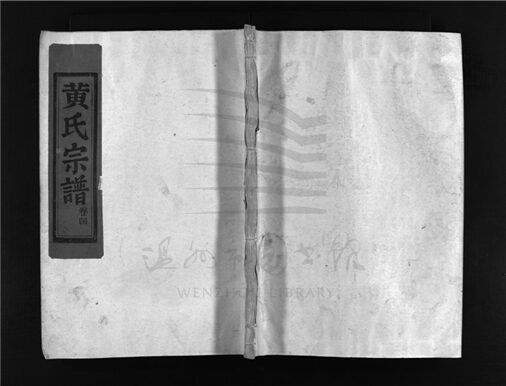 黄氏宗譜
卷四
温州市图书馆
WENZHOU LIBRARY